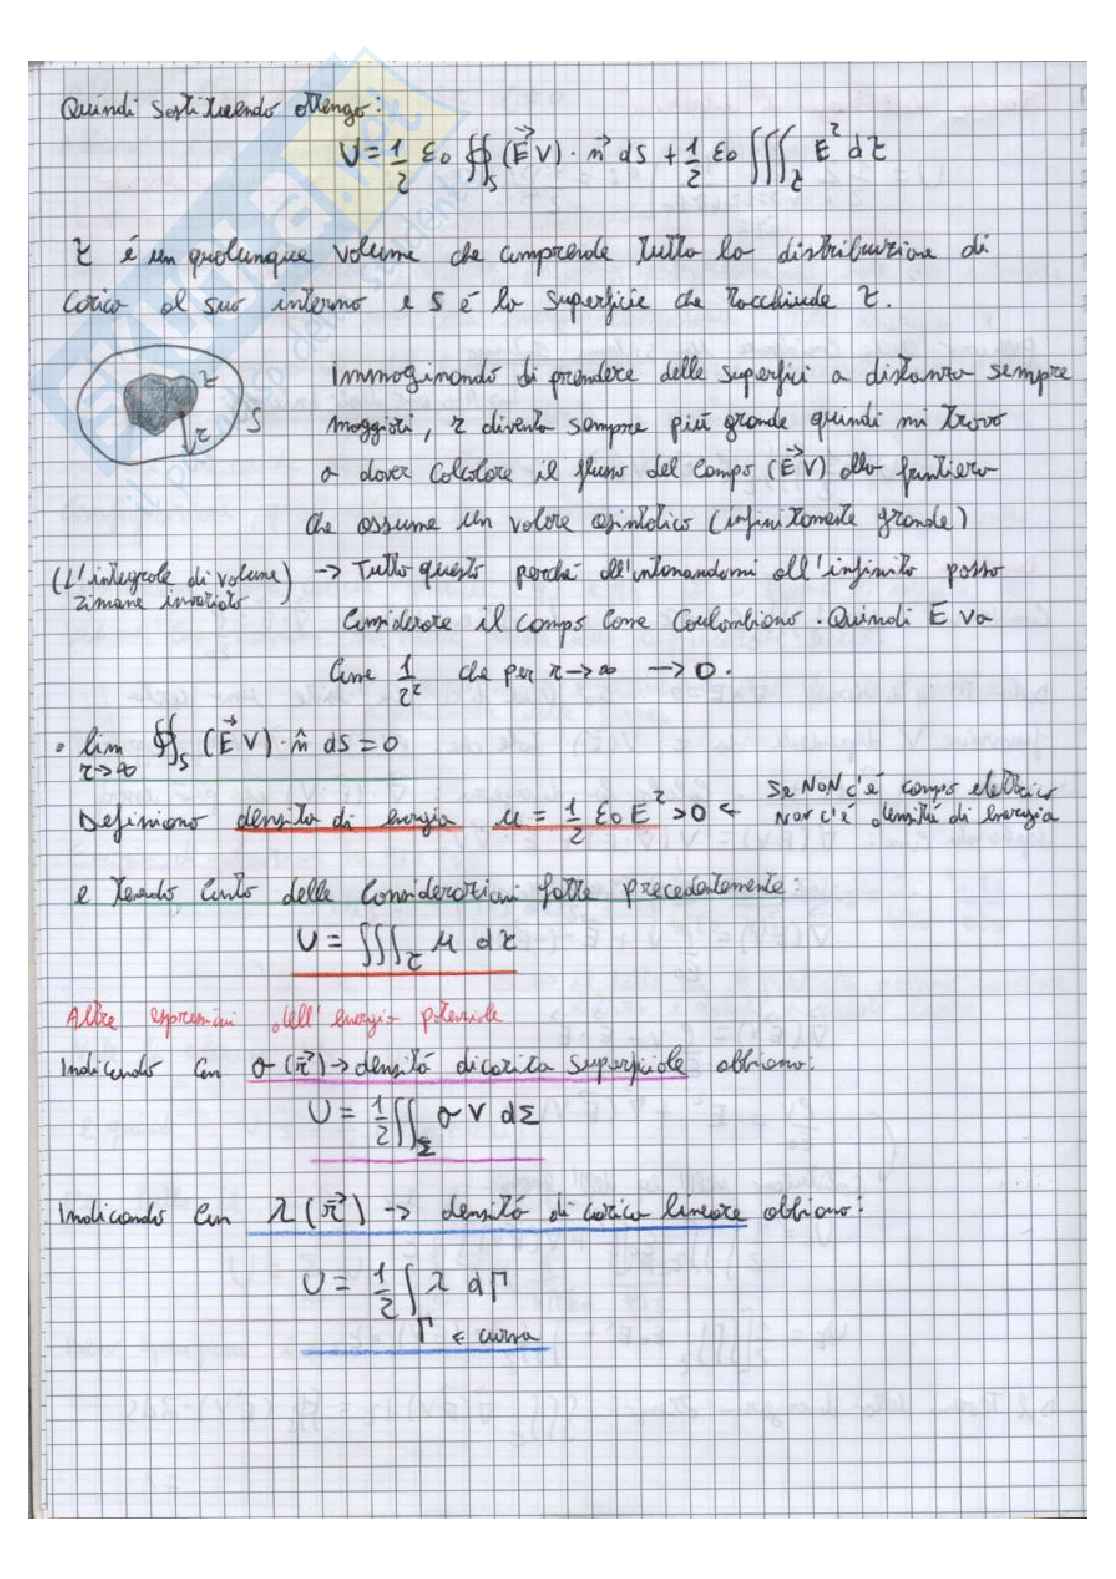 Quindi sostituendo ottengo:
U = 1/2 ε0 ∯_S (E⃗ V) · n⃗ dS + 1/2 ε0 ∭_τ E² dτ
τ é un qualunque volume che comprende tutta la distribuzione di
carica al suo interno e S é la superficie che racchiude τ.
Immaginando di prendere delle superfici a distanza sempre
maggiori, r diventa sempre più grande quindi mi trovo
a dover calcolare il flusso del campo (E⃗ V) alla frontiera
che assume un valore asintotico (infinitamente grande)
(L'integrale di volume rimane invariato) → Tutto questo perché all'allontanandomi all'infinito posso
considerare il campo come Coulombiano. Quindi E va
come 1/r² che per r→∞ → 0.
τ
r
S
• lim r→∞ ∯_S (E⃗ V) · n̂ dS = 0
Definiamo densità di energia u = 1/2 ε0 E² > 0 ← Se NON c'é campo elettrico
NON c'é densità di energia
e tenendo conto delle considerazioni fatte precedentemente:
U = ∭_τ u dτ
Altre espressioni dell'energia potenziale
Indicando con σ(r⃗) → densitá di carica superficiale abbiamo:
U = 1/2 ∬_Σ σ V dΣ
Indicando con λ(r⃗) → densitá di carica lineare abbiamo:
U = 1/2 ∫ λ dΓ
Γ ← curva